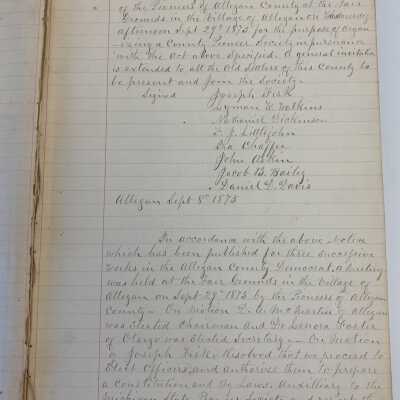 of the Pioneers of Allegan County at the Fair
Grounds in the Village of Allegan on Wednesday
afternoon Sept 29th 1875 for the purpose of organ
izing a County Pioneer Society in pursuance
with the Act above Specified. A general invitation
is extended to all the Old Settlers of this County to
be present and join the Society.
Signed Joseph Fisk
Lyman W. Watkins
Nathaniel Dickinson
F. J. Littlejohn
Ira Chaffee
John Askin
Jacob B. Bailey
Daniel L. Davis
Allegan Sept 8th 1875
In accordance with the above Notice
which has been published for three successive
weeks in the Allegan County Democrat, a Meeting
was held at the Fair Grounds in the Village of
Allegan on Sept 29th 1875 by the Pioneers of Allegan
County - On Motion D. A. McMartin of Allegan
was Elected Chairman and Dr Foster
of Otsego was Elected Secretary - On Motion
of Joseph Fisk Resolved that we proceed to
Elect Officers, and authorize them to prepare
a Constitution and By Laws, Auxilliary to the
Michigan State Pioneer Society